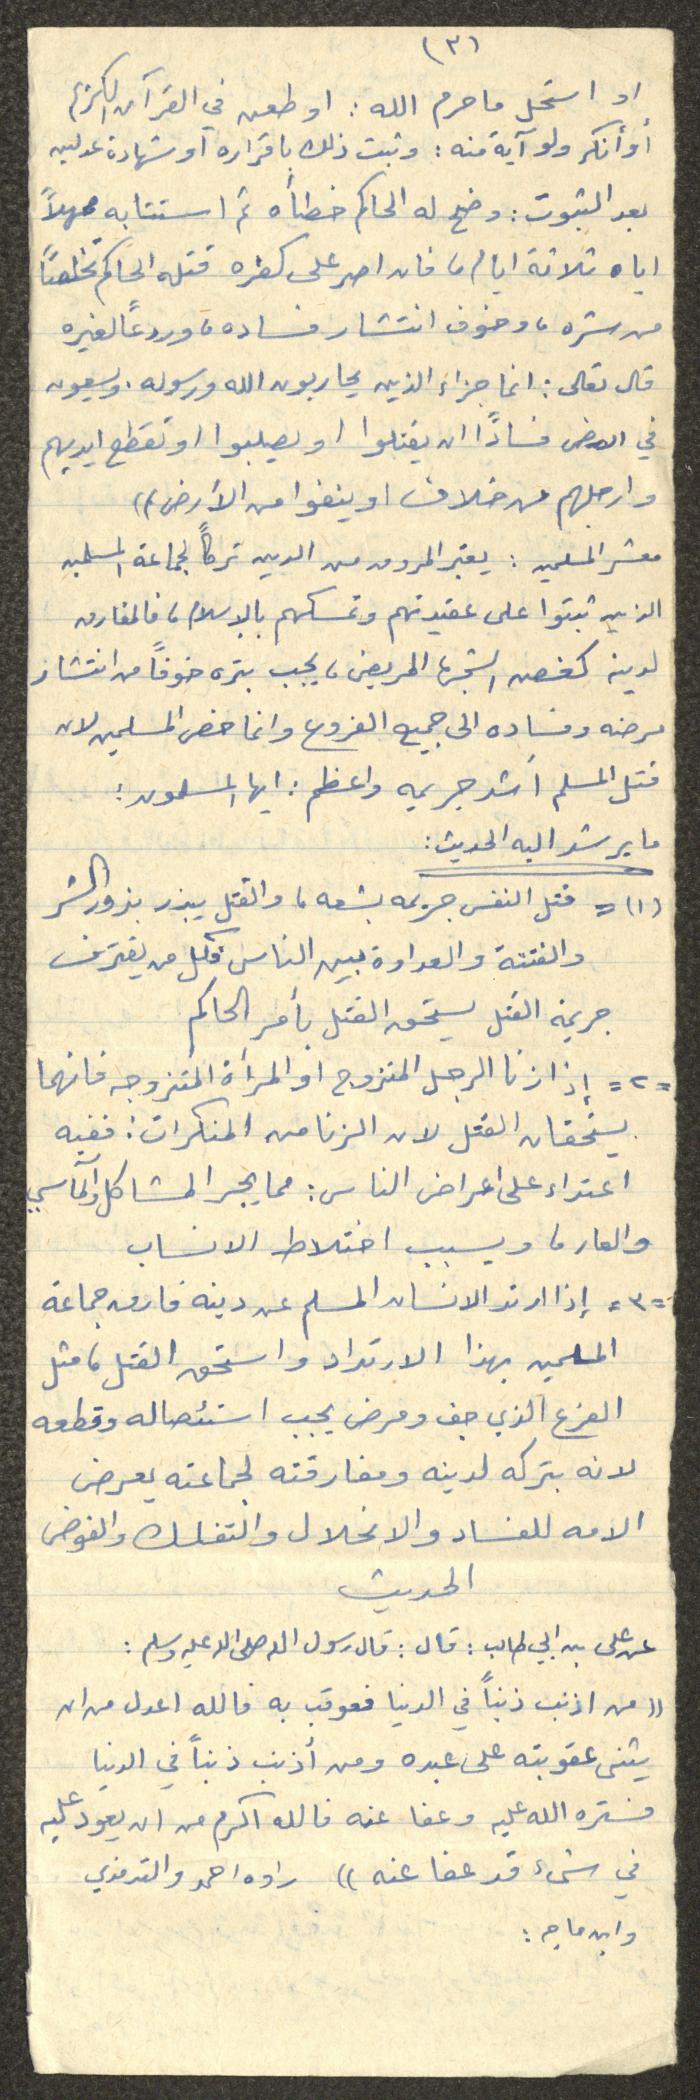 (٣)
او استحل ما حرم الله : او طعن في القرآن الكريم
أو أنكر ولو آية منه : وثبت ذلك باقراره أو شهادة عدلين
بعد الثبوت : وضح له الحاكم خطأه ثم استتابه ممهلاً
اياه ثلاثة ايام ، فان اصر على كفره قتله الحاكم تخلصاً
من شره ، وخوف انتشار فساده ، وردعاً لغيره
قال تعالى : انما جزاء الذين يحاربون الله ورسوله . ويسعون
في الارض فساداً ان يقتلوا او يصلبوا او تقطع ايديهم
وارجلهم من خلاف او ينفوا من الأرض ))
معشر المسلمين : يعتبر المروق من الدين تركاً لجماعة المسلمين
الذين ثبتوا على عقيدتهم وتمسكهم بالإسلام ، فالمفارق
لدينه كغصن الشجرة المريض ، يجب بتره خوفاً من انتشار
مرضه وفساده الى جميع الفروع وانما خص المسلمين لان
قتل المسلم أشد جريمه واعظم : ايها المسلمون :
ما يرشد اليه الحديث :
(١) = قتل النفس جريمه بشعه ، والقتل يبذر بذور الشر
والفتنة والعداوة بين الناس فكل من يقترف
جريمة القتل يستحق القتل بأمر الحاكم
= ٢ = إذا زنا الرجل المتزوج او المرأة المتزوجه فانهما
يستحقان القتل لان الزنا من المنكرات : ففيه
اعتداء على اعراض الناس : مما يجر المشاكل والمآسي
والعار ، ويسبب اختلاط الانساب
= ٣ = إذا ارتد الانسان المسلم عن دينه فارق جماعة
المسلمين بهذا الارتداد واستحق القتل ، مثل
الفرع الذي جف ومرض يجب استئصاله وقطعه
لانه بتركه لدينه ومفارقته لجماعته يعرض
الامه للفساد والانحلال والتفكك والفوضى
الحديث
عن على بن ابي طالب : قال : قال رسول الله صلى الله عليه وسلم :
(( من اذنب ذنباً في الدنيا فعوقب به فالله اعدل من ان
يثنى عقوبته على عبده ومن أذنب ذنباً في الدنيا
فستره الله عليه وعفا عنه فالله اكرم من ان يعود عليه
في شىء قد عفا عنه )) راوه احمد والترمذي
وابن ماجه :